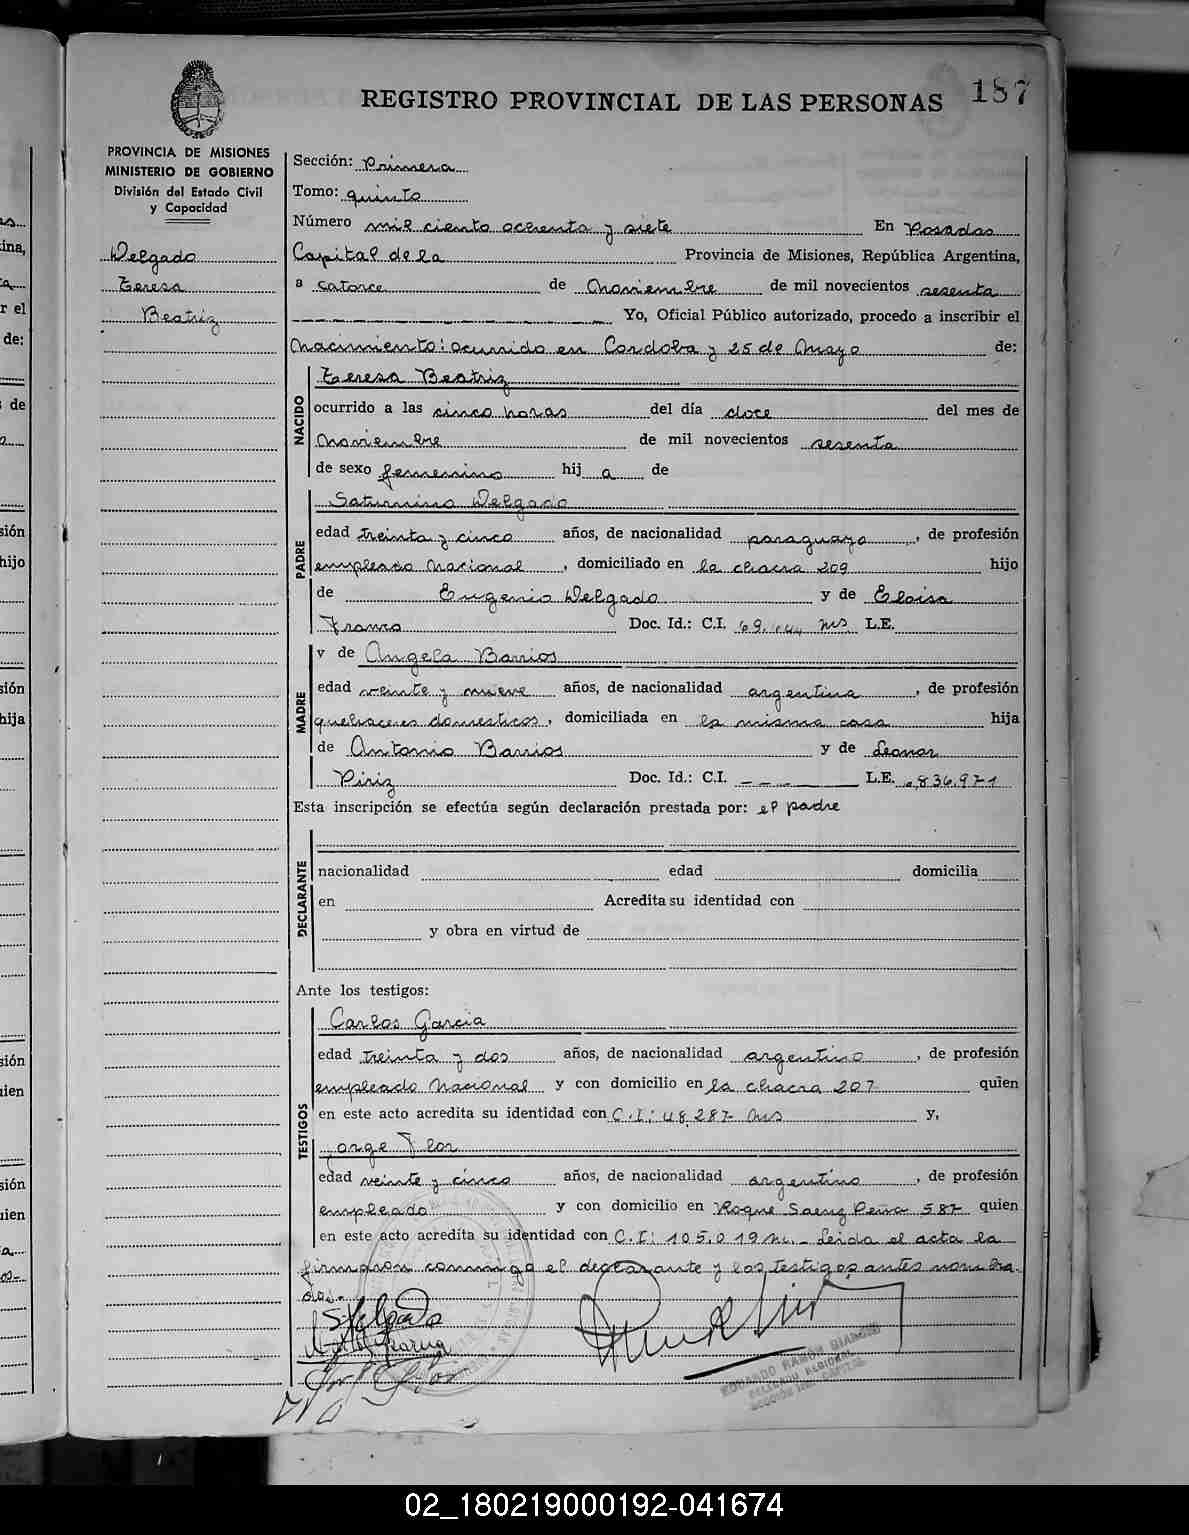 187
REGISTRO PROVINCIAL DE LAS PERSONAS
PROVINCIA DE MISIONES
MINISTERIO DE GOBIERNO
División del Estado Civil
y Capacidad
Delgado
Teresa
Beatriz
Sección: Primera
Tomo: quinto
Número mil ciento ochenta y siete En Posadas
Capital de la Provincia de Misiones, República Argentina,
a catorce de Noviembre de mil novecientos sesenta
Yo, Oficial Público autorizado, procedo a inscribir el
Nacimiento: ocurrido en Cordoba y 25 de Mayo de:
NACIDO
Teresa Beatriz
ocurrido a las cinco horas del día doce del mes de
Noviembre de mil novecientos sesenta
de sexo femenino hij a de
PADRE
Saturnino Delgado
edad treinta y cinco años, de nacionalidad paraguayo, de profesión
empleado Nacional, domiciliado en la chacra 209 hijo
de Eugenio Delgado y de Eloisa
Franco Doc. Id.: C.I. Ms. L.E.
MADRE
y de Angela Barrios
edad veinte y nueve años, de nacionalidad argentina, de profesión
quehaceres domesticos, domiciliada en la misma casa hija
de Antonio Barrios y de Leonor
Piriz Doc. Id.: C.I. - - - L.E. 6.836.971
Esta inscripción se efectúa según declaración prestada por: el padre
DECLARANTE
nacionalidad edad domicilia
en Acredita su identidad con
y obra en virtud de
Ante los testigos:
TESTIGOS
Carlos Garcia
edad treinta y dos años, de nacionalidad argentino, de profesión
empleado Nacional y con domicilio en la chacra 207 quien
en este acto acredita su identidad con C.I: 48.287 Ms y,
Jorge Flor
edad veinte y cinco años, de nacionalidad argentino, de profesión
empleado y con domicilio en Roque Saenz Peña 587 quien
en este acto acredita su identidad con C.I: 105.019 M. - Leida el acta la
firmaron conmigo el declarante y los testigos antes nombra
dos.-
S. Delgado
EDUARDO RAMON
DELEGADO REGIONAL
SECCION 1RA. CAPITAL
02_180219000192-041674